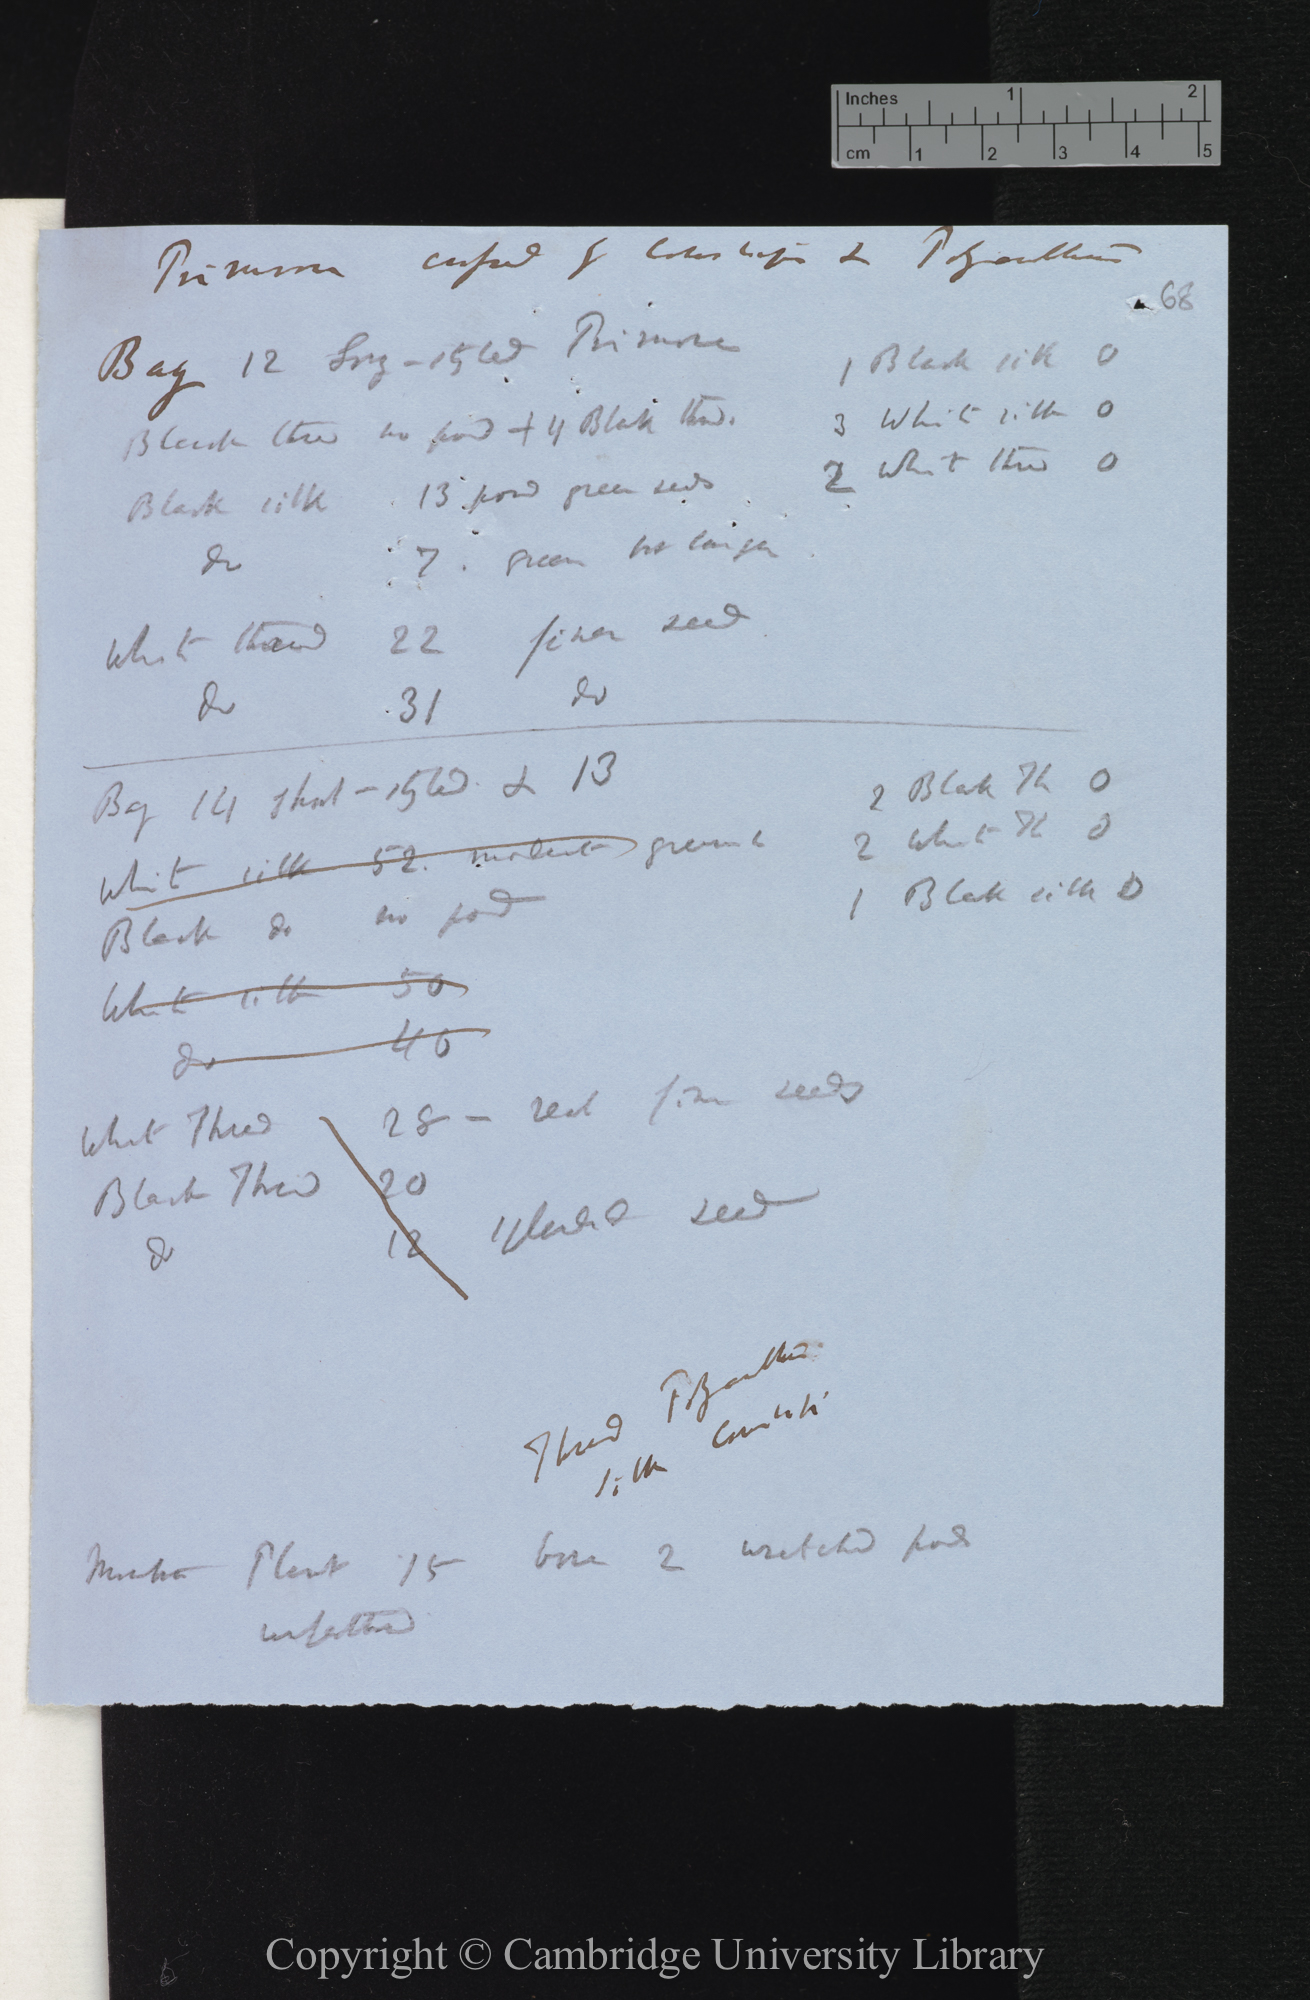 Inches 1 2
cm 1 2 3 4 5
Primrose crossed by Cowslips & Polyanthus
68
Bag 12 Long-styled Primrose
1 Black silk 0
Black thread no pod + 4 Black thread.
3 White silk 0
Black silk 13 pod green seeds
2 White thread 0
do 7. green but larger
White thread 22 finer seed
do 31 do
Bag 14 short-styled & 13
2 Black Th 0
White silk 52. moderate green
2 White Th 0
Black do no pod
1 Black silk 0
White silk 50
do 40
White Thread 28 — real fine seeds
Black Thread 20
do 12 splendid seed
Thread Polyanthus
silk Cowslip
Plant 15 bore 2 wretched pods
Copyright © Cambridge University Library